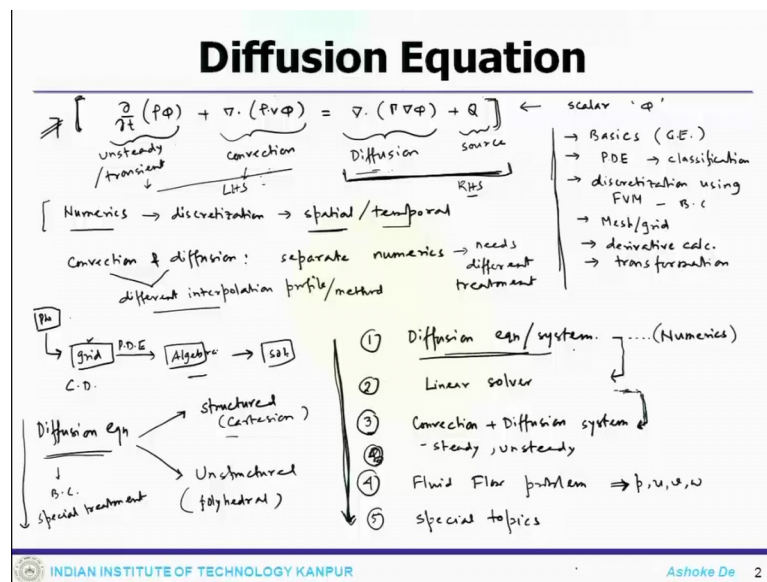 Diffusion Equation
[ ∂/∂t (ρφ) + ∇·(ρvφ) = ∇·(Γ∇φ) + Q ] ← scalar 'φ'
unsteady / transient
convection
Diffusion
source
LHS
RHS
→ Basics (G.E.)
→ PDE → classification
→ discretization using FVM - B.C
→ Mesh/grid
→ derivative calc.
→ transformation
[ Numerics → discretization → spatial / temporal
Convection & diffusion : separate numerics → needs different treatment
different interpolation profile/method
grid P.D.E → Algebra → soln
C.D.
Diffusion eqn
B.C.
special treatment
structured
(cartesian)
Unstructured
(polyhedral)
① Diffusion eqn/system. ....(Numerics)
② Linear solver
③ Convection + Diffusion system
- steady, unsteady
④ Fluid Flow problem ⇒ p,u,v,w
⑤ special topics
INDIAN INSTITUTE OF TECHNOLOGY KANPUR
Ashoke De 2